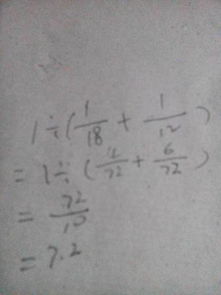 1÷(1/18 + 1/12)
= 1÷(4/72 + 6/72)
= 72/10
= 7.2